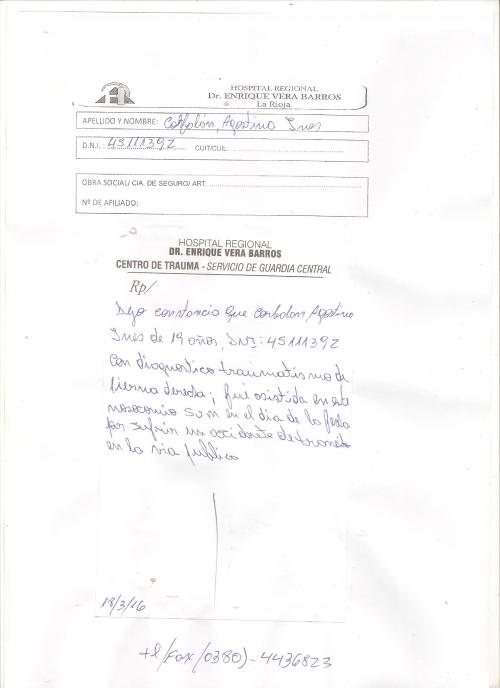 HOSPITAL REGIONAL
Dr. ENRIQUE VERA BARROS
La Rioja
APELLIDO Y NOMBRE: Carbolón, Agostina Ines
D.N.I.: 45111392 CUIT/CUIL:
OBRA SOCIAL/ CIA. DE SEGURO/ ART.
Nº DE AFILIADO:
HOSPITAL REGIONAL
DR. ENRIQUE VERA BARROS
CENTRO DE TRAUMA - SERVICIO DE GUARDIA CENTRAL
Rp/
Dejo constancia que Carbolon, Agostina
Ines de 19 años, DNI: 45111392
Con diagnostico traumatismo de
pierna derecha; fue asistida en este
nosocomio en el dia de la fecha
por sufrir un accidente de transito
en la via publica
18/3/16
tel/fax (0380)-4436823